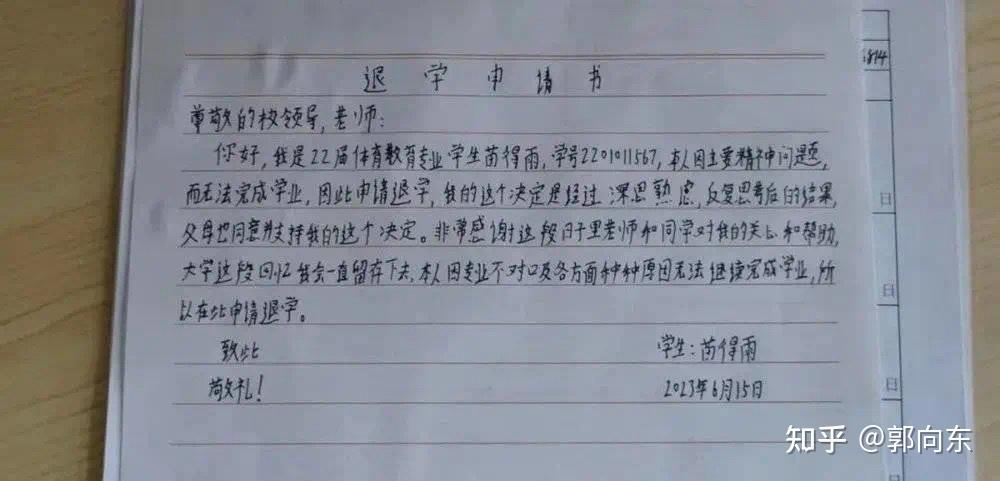 退学申请书
尊敬的校领导,老师:
你好,我是22届体育教育专业学生苗得雨,学号2201011567,本人因主要精神问题,
而无法完成学业,因此申请退学,我的这个决定是经过深思熟虑,反复思考后的结果,
父母也同意支持我的这个决定。非常感谢这段日子里老师和同学对我的关心和帮助,
大学这段回忆我会一直留存下去,本人因专业不对口及各方面种种原因无法继续完成学业,所
以在此申请退学。
致此
学生:苗得雨
敬礼!
2023年6月15日
日
日
日
知乎 @郭向东